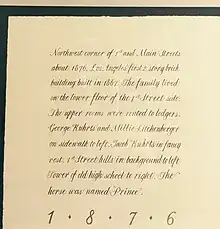 Northwest corner of 1st and Main Streets
about 1876, Los Angeles first 2 story brick
building built in 1869. The family lived
on the lower floor of the 1st Street side.
The upper rooms were rented to lodgers.
George Kuhrts and Millie Kitchenberger
on sidewalk to left. Jacob Kuhrts in fancy
vest. 1st Street hills in background to left
Tower of old high school to right. The
horse was named "Prince".
1 · 8 · 7 · 6